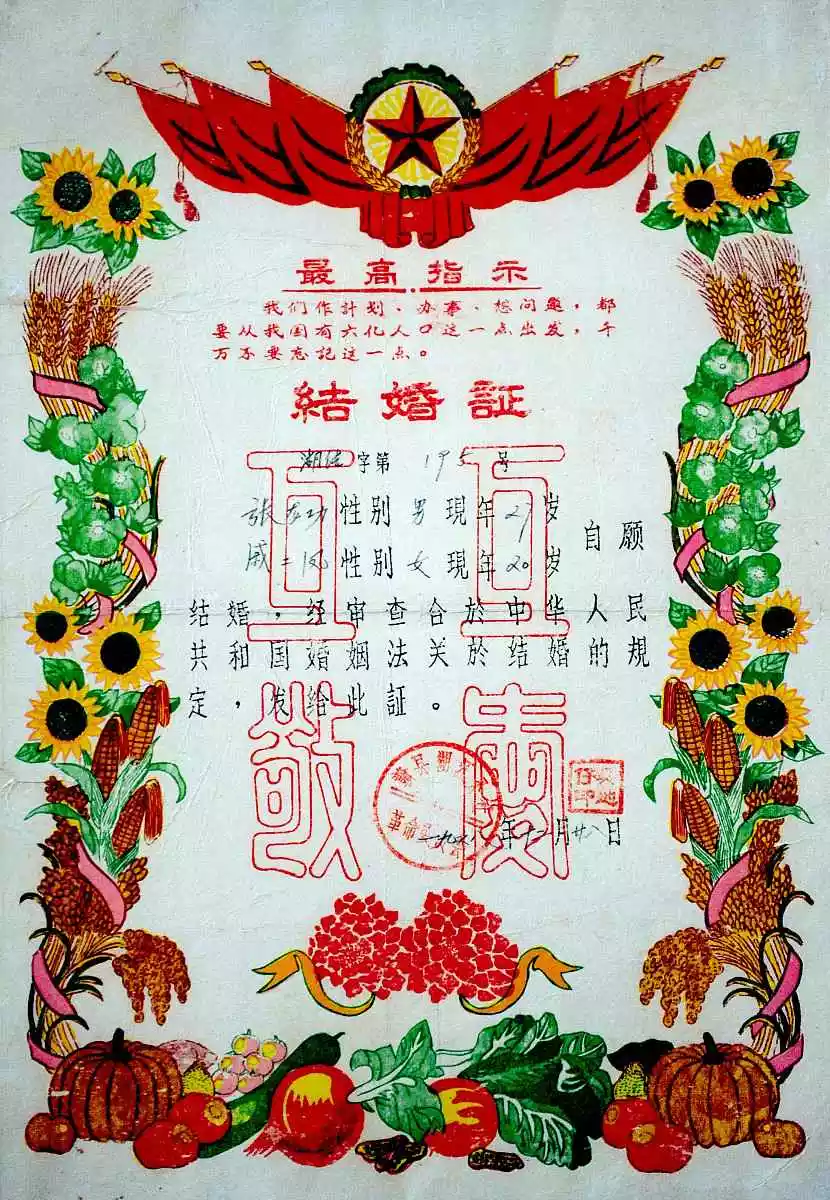 最高指示
我们作計划、办事、想问題，都
要从我国有六亿人口这一点出发，千
万不要忘記这一点。
結婚証
湖 字第 195 号
張 功 性别 男 現年 27 岁
戚二凤 性别 女 現年 20 岁 自愿
结婚，经审查合於中华人民
共和国婚姻法关於结婚的規
定，发给此証。
互互
敬爱
革命
一九六八年十二月廿八日